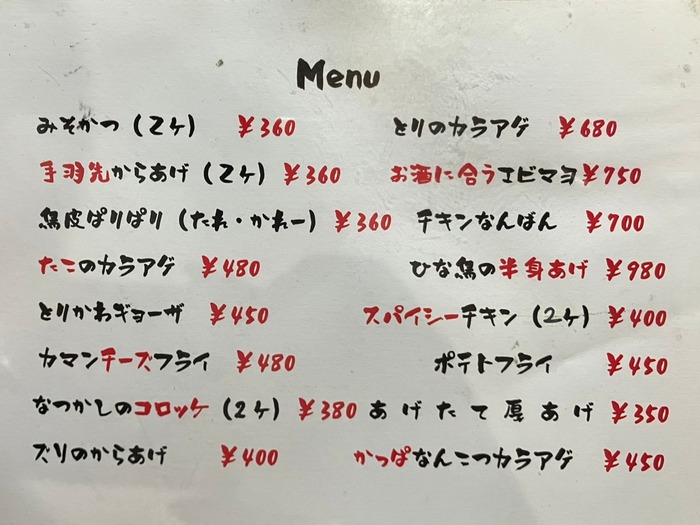 Menu
みそかつ(2ヶ) ¥360
手羽先からあげ(2ヶ) ¥360
鳥皮ぱりぱり(たれ・かれー) ¥360
たこのカラアゲ ¥480
とりかわギョーザ ¥450
カマンチーズフライ ¥480
なつかしのコロッケ(2ヶ) ¥380
ズリのからあげ ¥400
とりのカラアゲ ¥680
お酒に合うエビマヨ ¥750
チキンなんばん ¥700
ひな鳥の半身あげ ¥980
スパイシーチキン(2ヶ) ¥400
ポテトフライ ¥450
あげたて厚あげ ¥350
かっぱなんこつカラアゲ ¥450